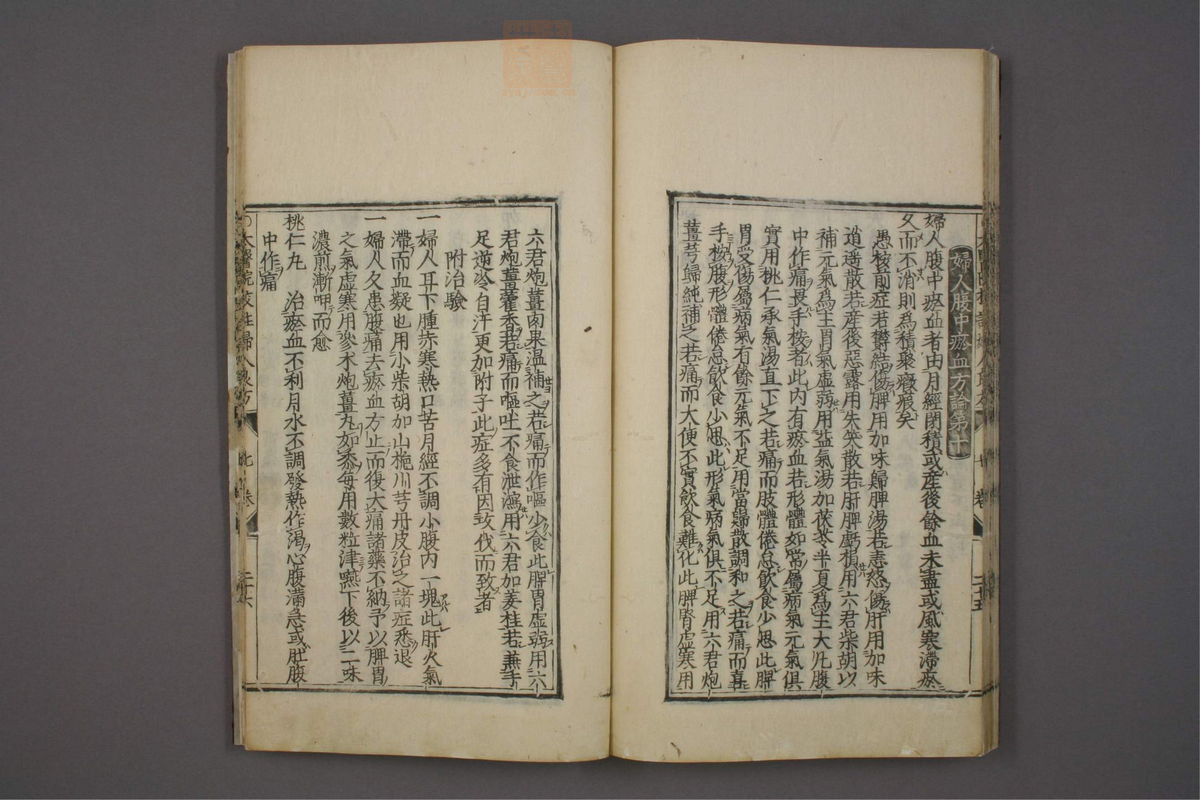 婦人腹中瘀血方論第十
婦人腹中瘀血者由月經閉積或產後餘血未盡或風寒滯瘀
久而不消則為積聚癥瘕矣
愚按前症若鬱結傷脾用加味歸脾湯若恚怒傷肝用加味
逍遙散若產後惡露用失笑散若肝脾虧損用六君柴胡以
補元氣為主胃氣虛弱用益氣湯加茯苓半夏為主大凡腹
中作痛畏手按者此內有瘀血若形體如常屬病氣元氣俱
實用桃仁承氣湯直下之若痛而肢體倦怠飲食少思此脾
胃受傷屬病氣有餘元氣不足用當歸散調和之若痛而喜
手按腹形體倦怠飲食少思此形氣病氣俱不足用六君炮
薑芎歸純補之若痛而大便不實飲食難化此脾腎虛寒用
六君炮薑肉果溫補之若痛而作嘔少食此脾胃虛弱用六
君炮薑藿香若痛而嘔吐不食泄瀉用六君加姜桂若兼手
足逆冷自汗更加附子此症多有因攻伐而致者
附治驗
一婦人耳下腫赤寒熱口苦月經不調小腹內一塊此肝火氣
滯而血凝也用小柴胡加山梔川芎丹皮治之諸症悉退
一婦人久患腹痛去瘀血方止而復大痛諸藥不納予以脾胃
之氣虛寒用參朮炮薑丸如黍每用數粒津嚥下後以二味
濃煎漸呷而愈
桃仁丸 治瘀血不利月水不調發熱作渴心腹滿急或肚腹
中作痛
太醫院校註婦人良方
卷
二十六